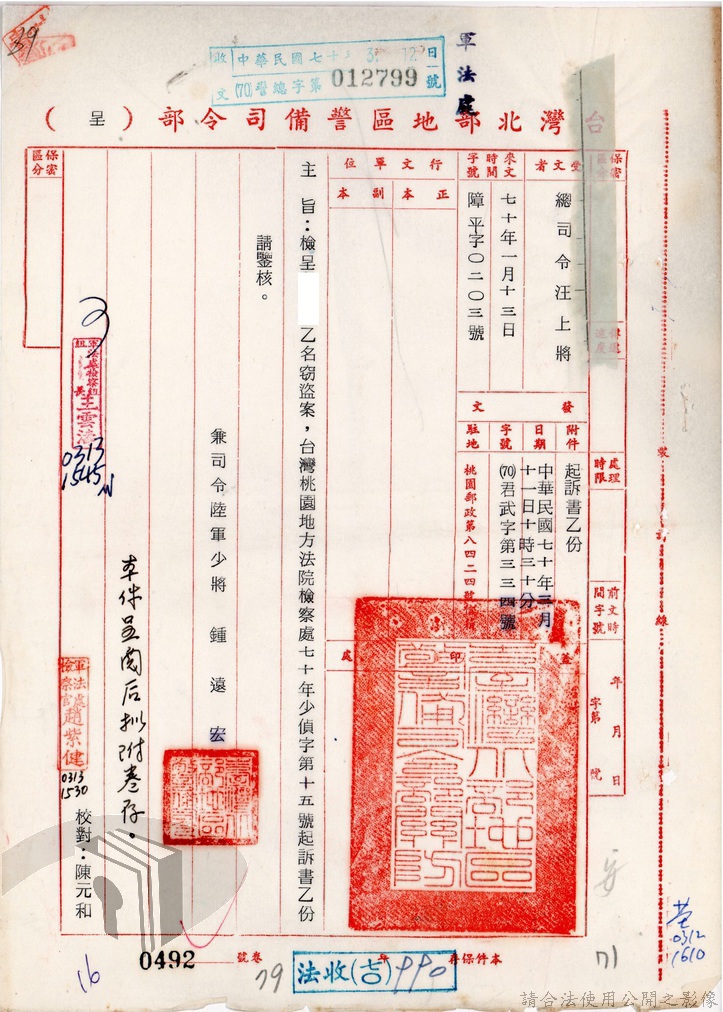 39
收文
中華民國七十 3 12日
(70)警總字第012799號
軍法處
台灣北部地區警備司令部(呈)
保密區分
受文者
總司令汪上將
傳遞速度
處理時限
前文時間字號
年 月 日
字第 號
來文時間字號
七十年一月十三日
障平字〇二〇三號
行文單位
正本
副本
發文
附件
起訴書乙份
日期
中華民國七十年三月十一日十時三十分
字號
(70)君武字第三三四號
駐地
桃園郵政第八四二四號
蓋印處
主旨:檢呈 乙名窃盜案,台灣桃園地方法院檢察處七十年少偵字第十五號起訴書乙份
請鑒核。
兼司令陸軍少將 鍾遠宏
本件呈閱后擬附卷存。
保密區分
王雲濤
0313
1545
軍法處檢察官趙紫健
0313
1530
校對:陳元和
16
0492
卷號
79
法收(古)990
本件保存 年
71
0312
1610
裝
訂
線
請合法使用公開之影像